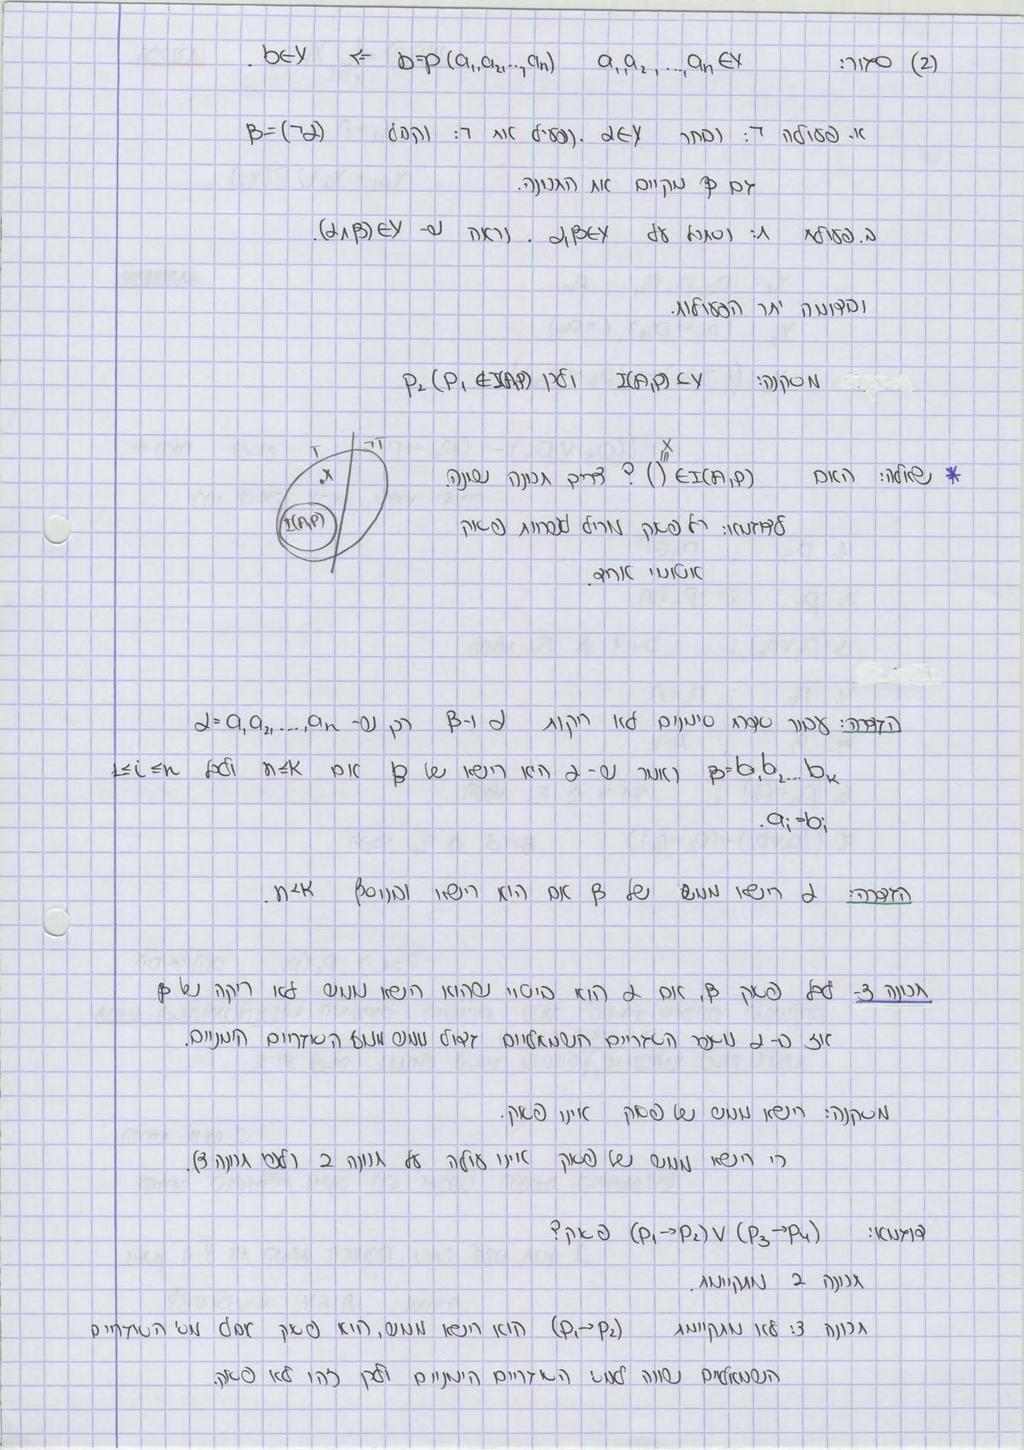 (2) סגור: a₁,a₂,...,aₙ∈Y b=p(a₁,a₂,...,aₙ) ⇐ b∈Y .
א. פעולה ¬: נבחר α∈Y. נפעיל את ¬: ונקבל β=(¬α)
גם β מקיים את התכונה.
ב. פעולת ∧: נסתכל על α,β∈Y . נראה ש- (α∧β)∈Y.
ובדומה יתר הפעולות.
מסקנה: I(A,P)⊂Y ולכן p₂(p₁∉I(A,P)
X
* שאלה: האם ()∈I(A,P) ? צריך תכונה שונה.
T ¬T
.X
I(A,P)
לדוגמא: כל פסוק מכיל לפחות פסוק
אטומי אחד.
הגדרה: עבור סדרת סימנים לא ריקות α ו-β כך ש- α=a₁a₂,...,aₙ
β=b₁b₂...bₖ נאמר ש-α היא רישא של β אם n≤k ולכל 1≤i≤n
aᵢ=bᵢ.
הגדרה: α רישא ממש של β אם הוא רישא ובנוסף n<k.
תכונה 3- לכל פסוק β, אם α הוא ביטוי שהוא רישא ממש לא ריקה של β
אז ב-α מספר הסוגריים השמאליים גדול ממש ממס' הסוגריים הימניים.
מסקנה: רישא ממש של פסוק אינו פסוק.
כי רישא ממש של פסוק אינו עולה על תכונה 2 (לפי תכונה 3).
דוגמא: (p₁→p₂)∨(p₃→p₄) פסוק?
תכונה 2 מתקיימת.
תכונה 3: לא מתקיימת (p₁→p₂) הוא רישא ממש, הוא פסוק אבל מס' הסוגריים
השמאליים שווה למס' הסוגריים הימניים ולכן זהו לא פסוק.